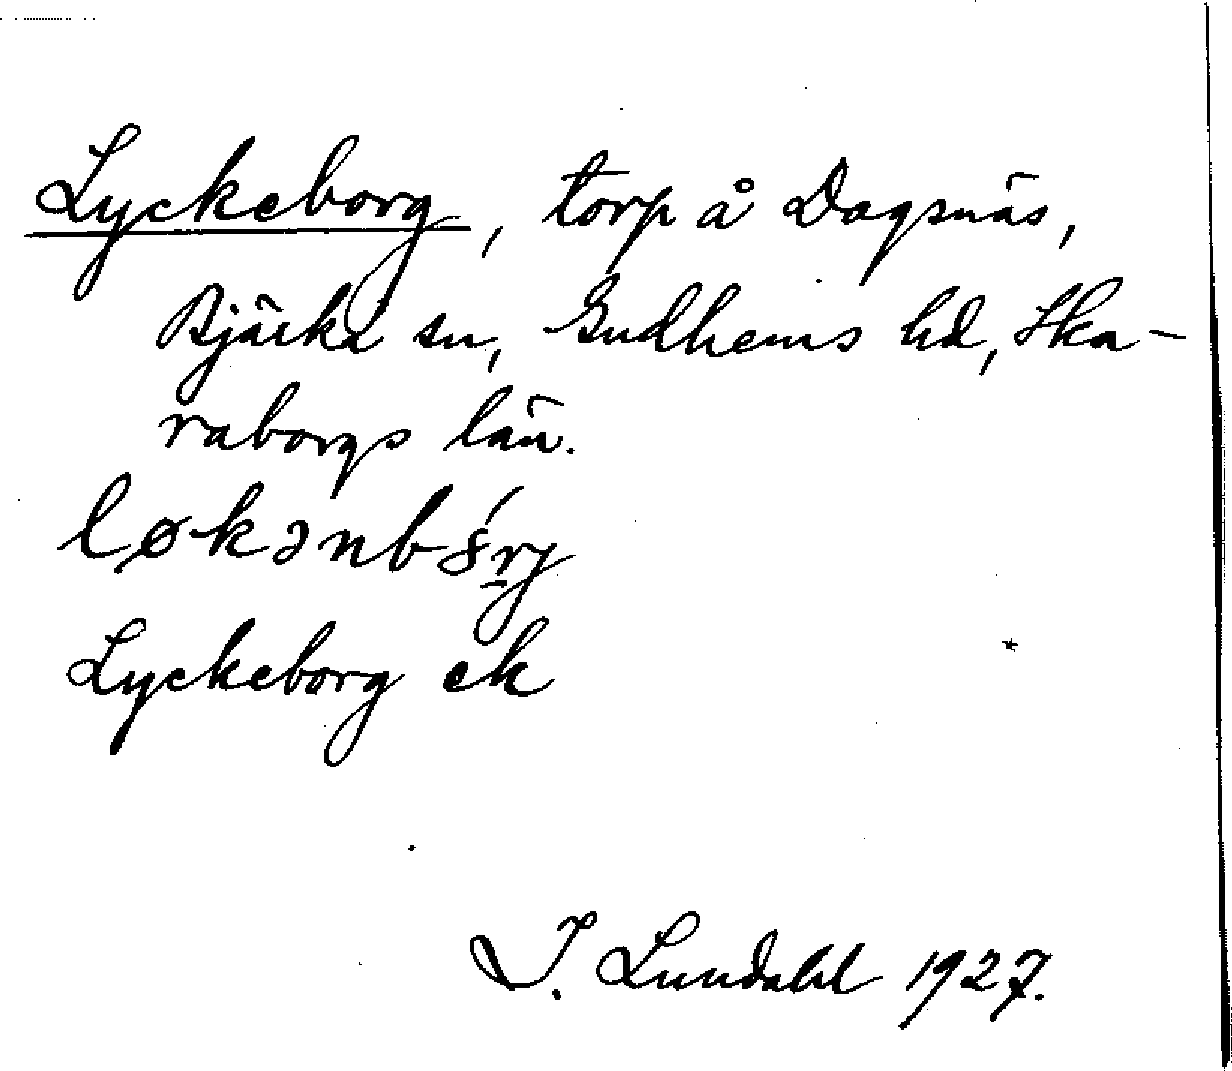 Lyckeborg, torp å Dagsnäs,
Bjärka sn, Gudhems hd, Ska-
raborgs län.
Lyckeborg ek
I. Lundahl 1927.